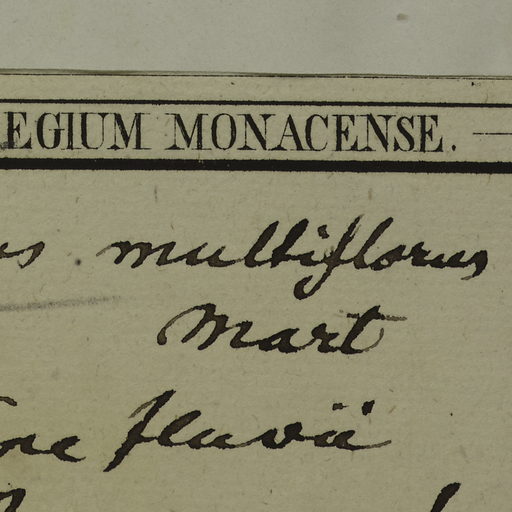 EGIUM MONACENSE.
us multiflorus
Mart
ore fluvii